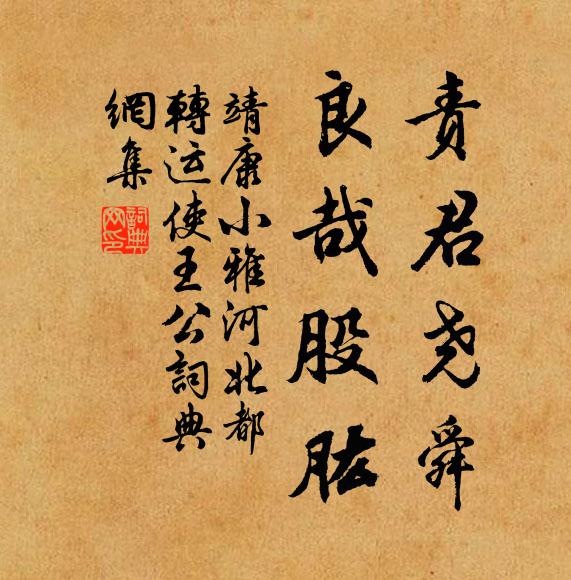 责君尧舜
良哉股肱
靖康小雅河北都
轉运使王公詞典
網集
詞典
网印